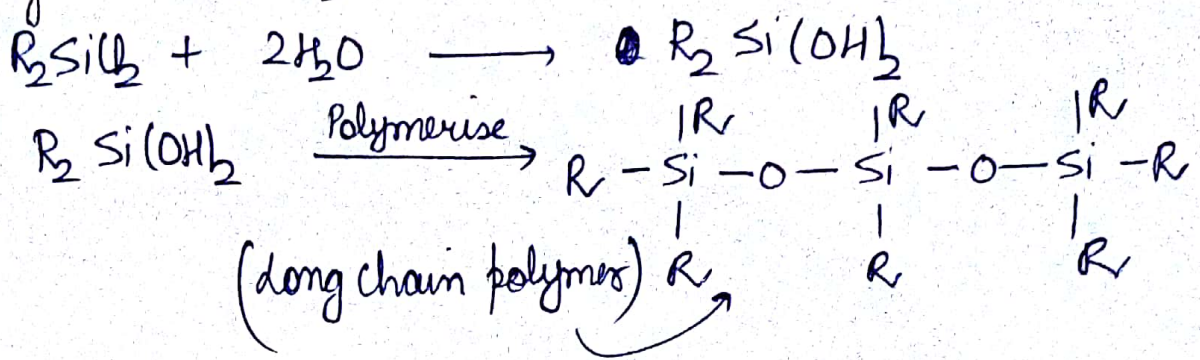 R₂SiCl₂ + 2H₂O ⟶ R₂Si(OH)₂
R₂Si(OH)₂ Polymerise ⟶
|R |R |R
R – Si – O – Si – O – Si – R
| | |
(Long chain polymer) R R R